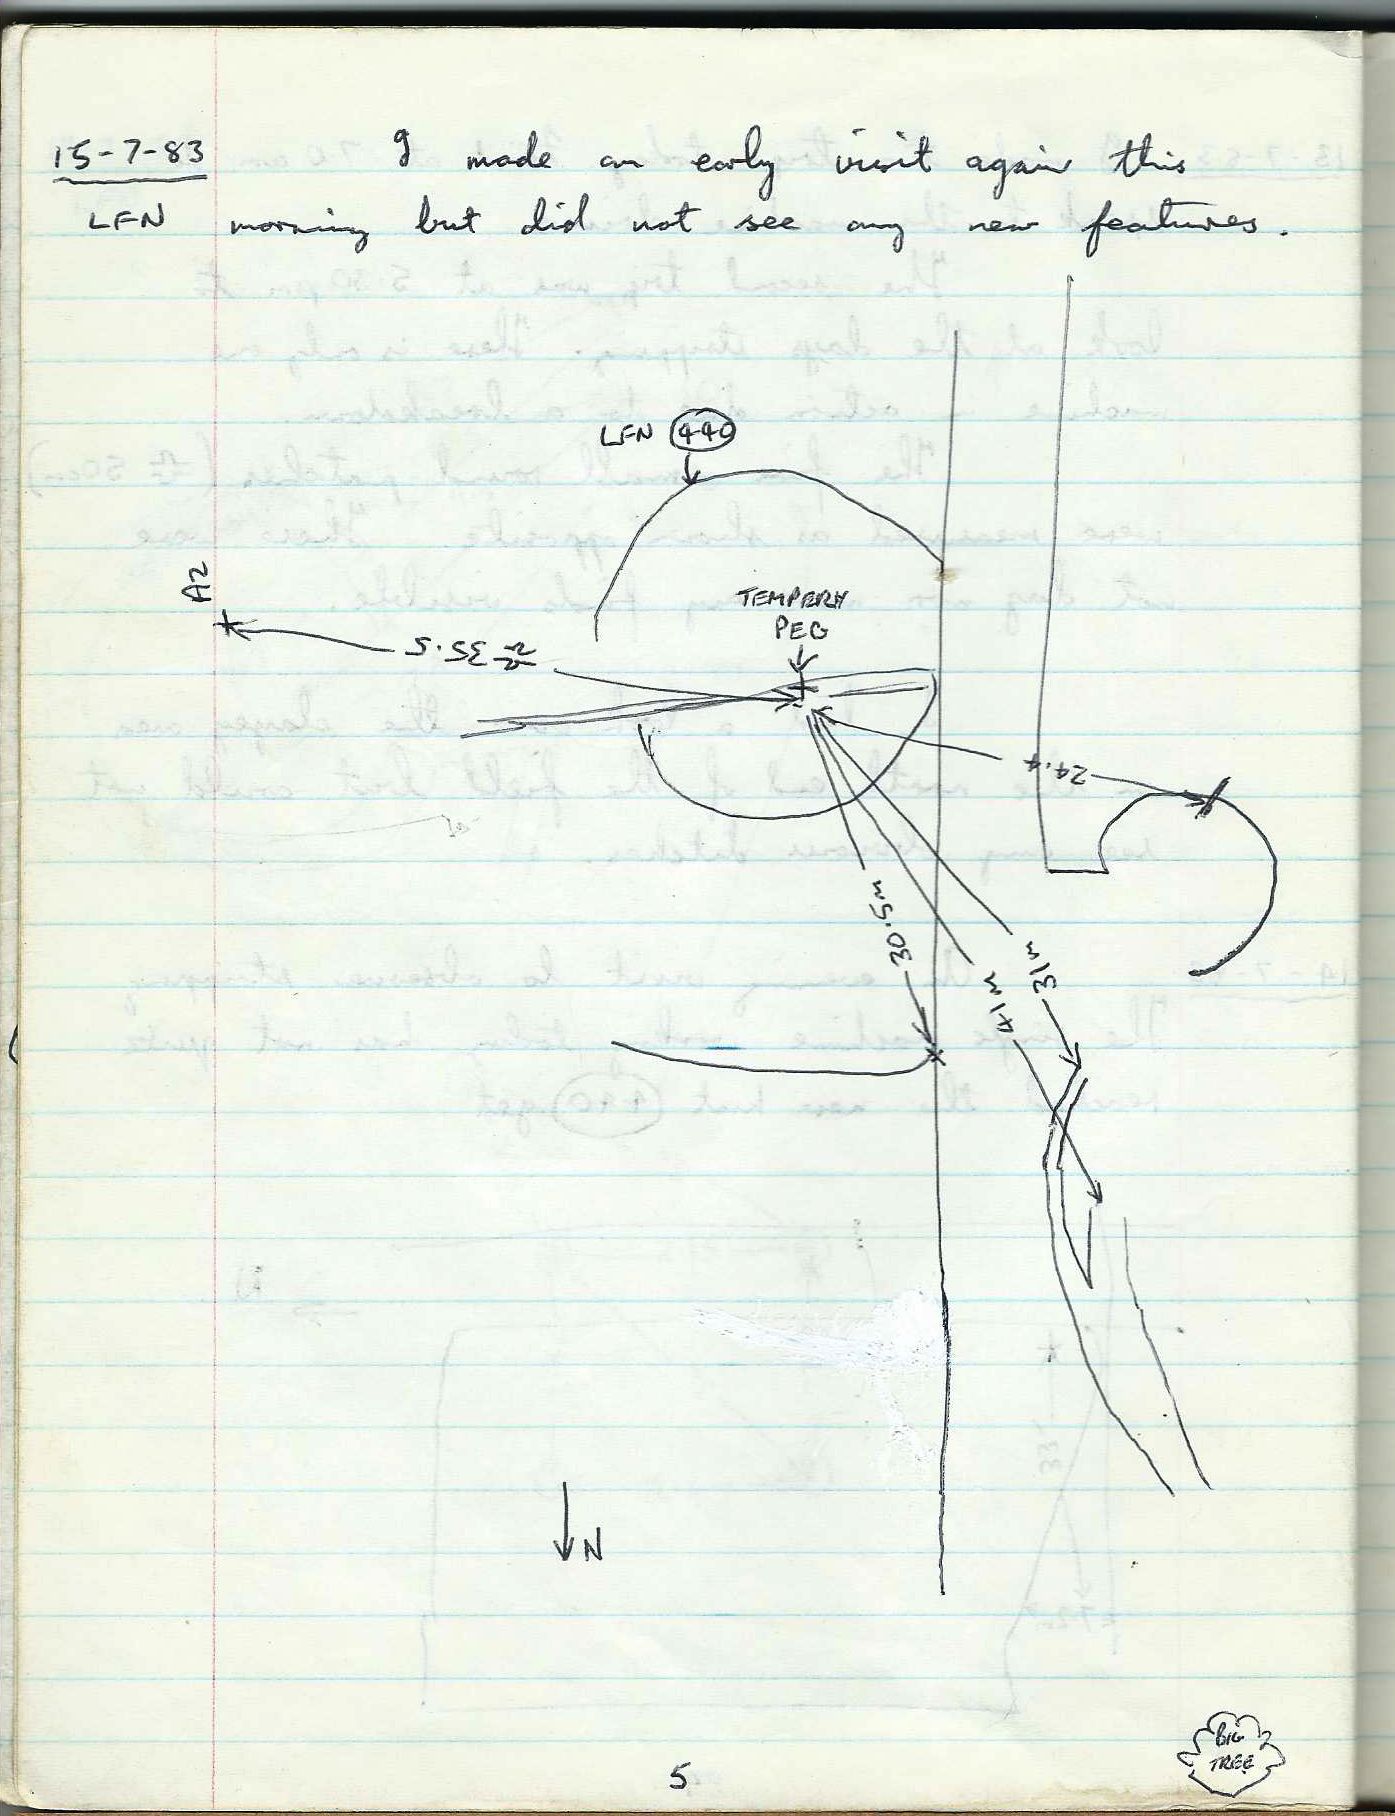 15-7-83 I made an early visit again this
LFN morning but did not see any new features.
LFN 440
A2
TEMPERY
PEG
35.5
24.4
30.5m
31m
41m
N
BIG
TREE
5